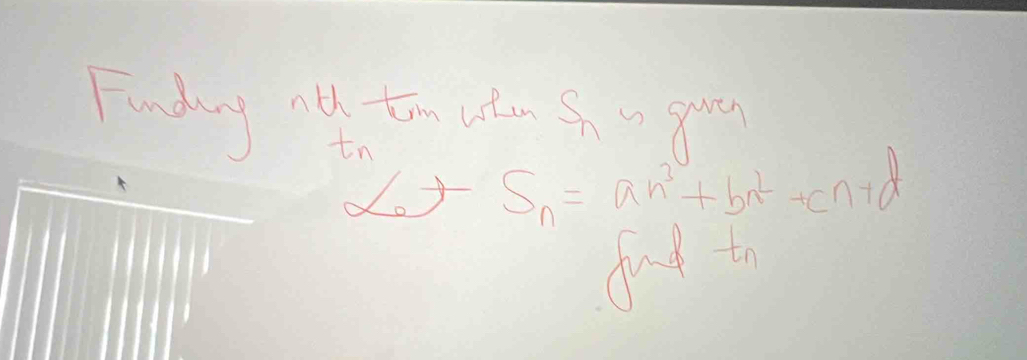 Finding nth term when Sₙ is given
tₙ
Let Sₙ = an³ + bn² + cn + d
find tₙ